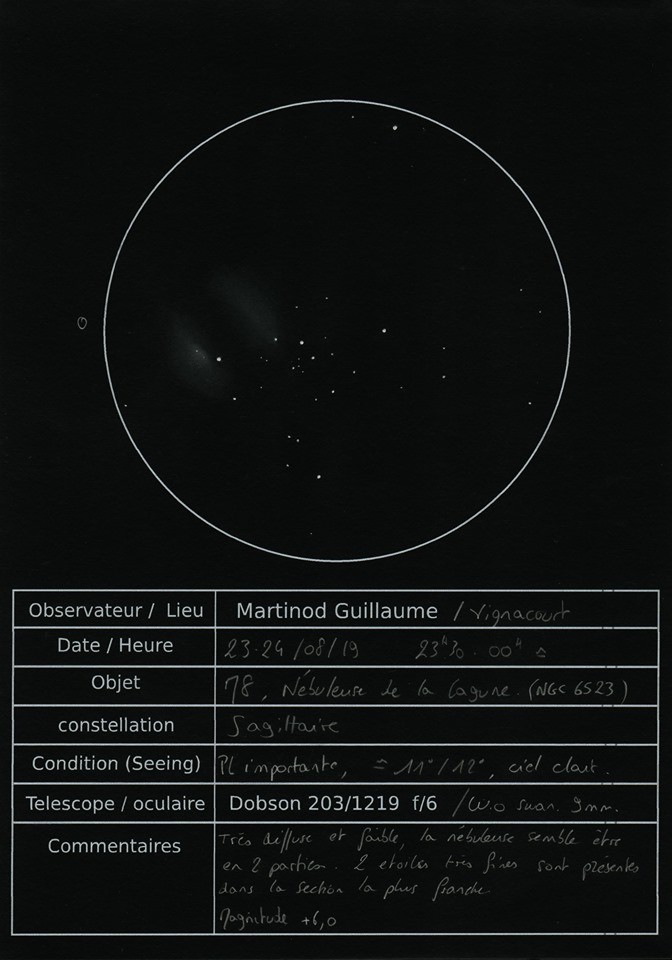 O
Observateur / Lieu Martinod Guillaume / Vignacourt
Date / Heure 23-24 /08/19 23h30 - 00h
Objet M8, Nébuleuse de la Lagune. (NGC 6523)
constellation Sagittaire
Condition (Seeing) PL importante, ≃ 11°/12°, ciel clair.
Telescope / oculaire Dobson 203/1219 f/6 / W.O swan. 9mm.
Commentaires
Très diffuse et faible, la nébuleuse semble être
en 2 parties. 2 étoiles très fines sont présentes
dans la section la plus franche.
Magnitude +6,0